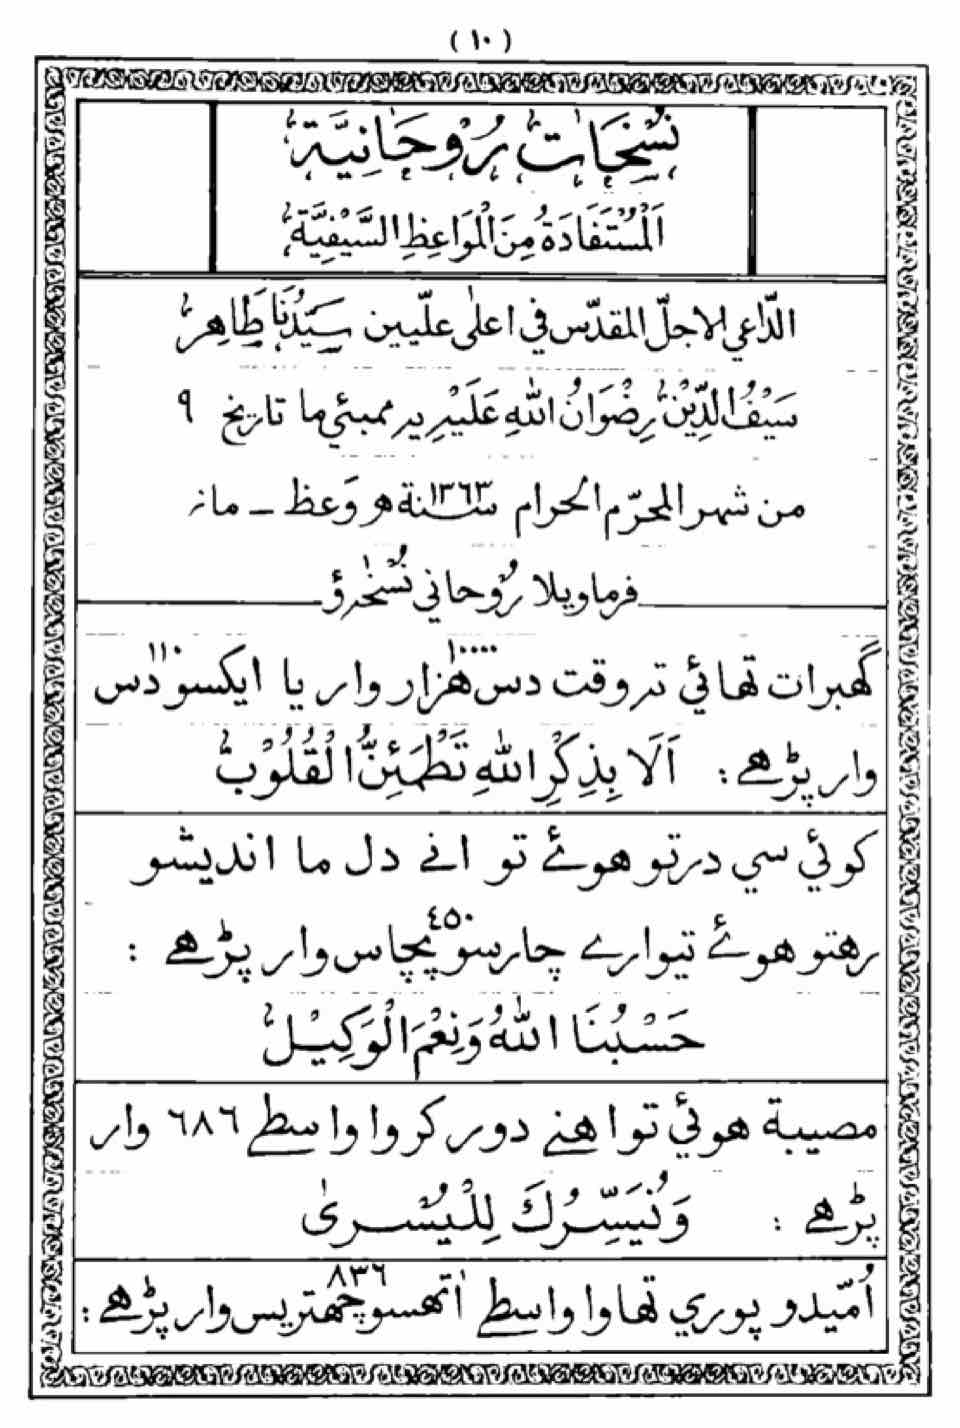 (١٠)
نُسْخَاتٌ رُوْحَانِيَّةٌ
اَلْمُسْتَفَادَةُ مِنَ الْمَوَاعِظِ السَّيْفِيَّةِ
الدّاعي الاجلّ المقدّس في اعلى علّيين سَيِّدُنَا طَاهِرْ
سَيْفُ الدِّيْنْ رِضْوَانُ اللهِ عَلَيْهِ يه ممبئي ما تاريخ ٩
من شهر المحرّم الحرام سنة ١٣٦٣ هـ وَعظ ــ مانہ
فرماويلا رُوْحاني نُسْخَهؤ
گھبرات تھائي تہ وقت دس ھزار ١٠٠٠٠ وار يا ايكسو دس ١١٠
وار پڑھے : اَلَا بِذِكْرِ اللهِ تَطْمَئِنُّ الْقُلُوْبُ
كوئي سي درتو هوئے تو انے دل ما انديشو
رهتو هوئے تيوارے چارسو پچاس ٤٥٠ وار پڑھے :
حَسْبُنَا اللهُ وَنِعْمَ الْوَكِيْلُ
مصيبة هوئي تو اهنے دور كروا واسطے ٦٨٦ وار
پڑھے : وَنُيَسِّرُكَ لِلْيُسْرىٰ
اُمّيدو پوري تھاوا واسطے اٰتھسو چھتريس ٨٣٦ وار پڑھے :